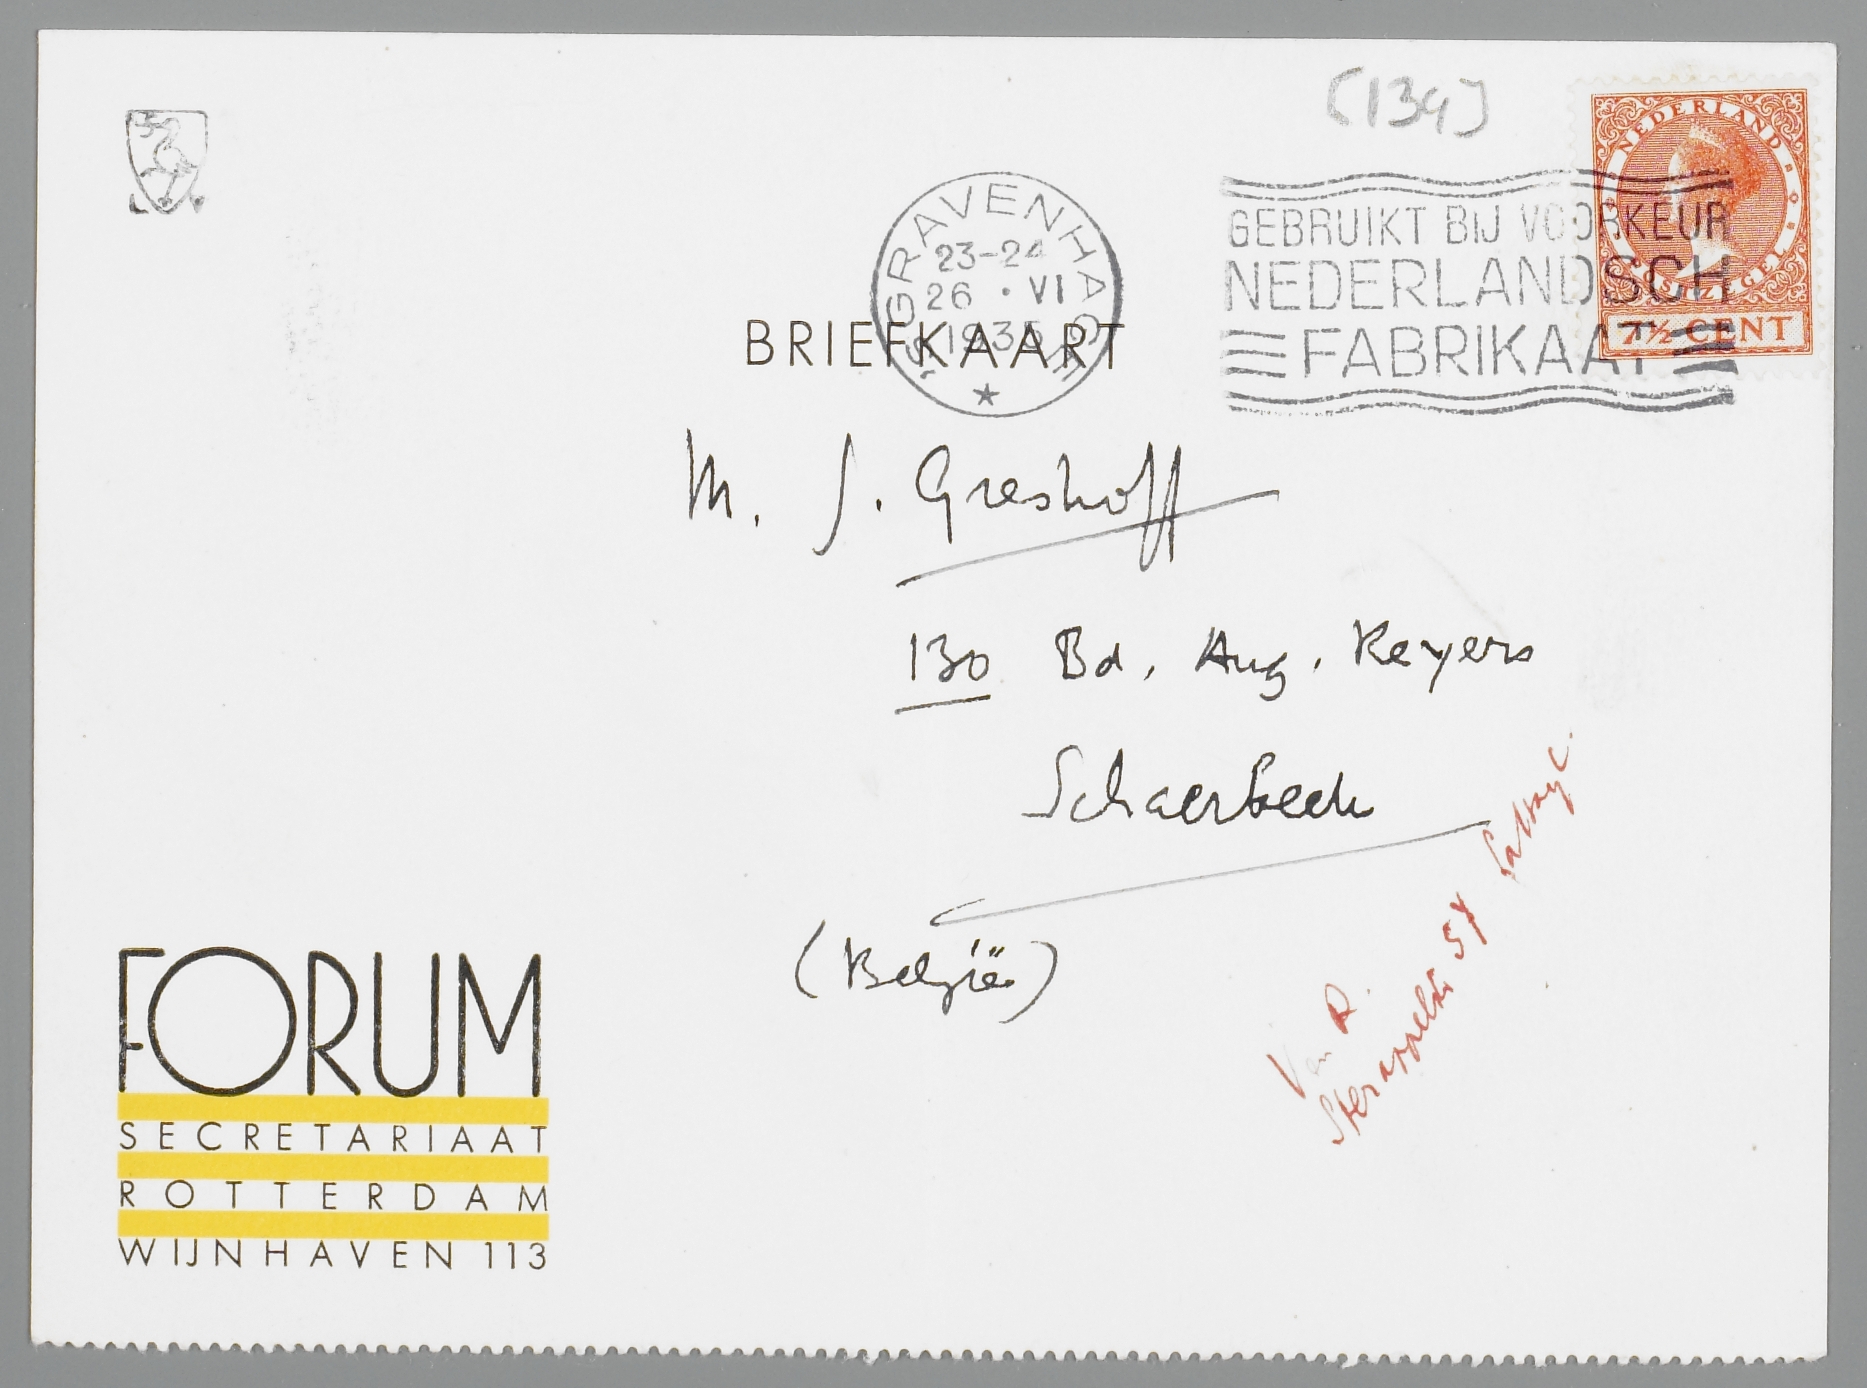 [134]
NEDERLAND
7½ CENT
'S GRAVENHAGE
23-24
26 · VI
1935
GEBRUIKT BIJ VOORKEUR
NEDERLANDSCH
FABRIKAAT
BRIEFKAART
M. J. Greshoff
130 Bd. Aug. Reyers
Schaerbeek
(België)
Van R.
54
FORUM
SECRETARIAAT
ROTTERDAM
WIJNHAVEN 113